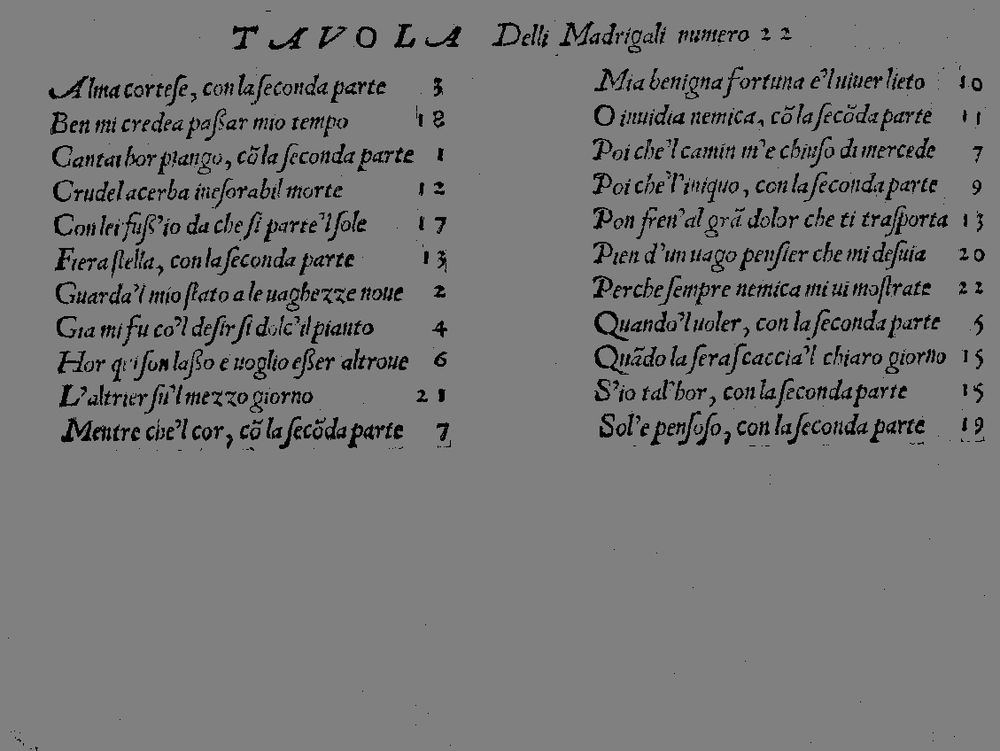 TAVOLA Delli Madrigali numero 22
Alma cortese, con la seconda parte 3
Ben mi credea passar mio tempo 18
Cantai hor piango, cõ la seconda parte 1
Crudel acerba inesorabil morte 12
Con lei fuss'io da che si parte'l sole 17
Fiera stella, con la seconda parte 13
Guarda'l mio stato a le uaghezze noue 2
Gia mi fu co'l desir si dolc'il pianto 4
Hor qui son lasso e uoglio esser altroue 6
L'altrier su'l mezzo giorno 21
Mentre che'l cor, cõ la secõda parte 7
Mia benigna fortuna e'l uiuer lieto 10
O inuidia nemica, cõ la secõda parte 11
Poi che'l camin m'e chiuso di mercede 7
Poi che'l'iniquo, con la seconda parte 9
Pon fren'al grã dolor che ti trasporta 13
Pien d'un uago pensier che mi desuia 20
Perche sempre nemica mi ui mostrate 22
Quando'l uoler, con la seconda parte 5
Quãdo la sera scaccia'l chiaro giorno 15
S'io tal'hor, con la seconda parte 15
Sol'e pensoso, con la seconda parte 19